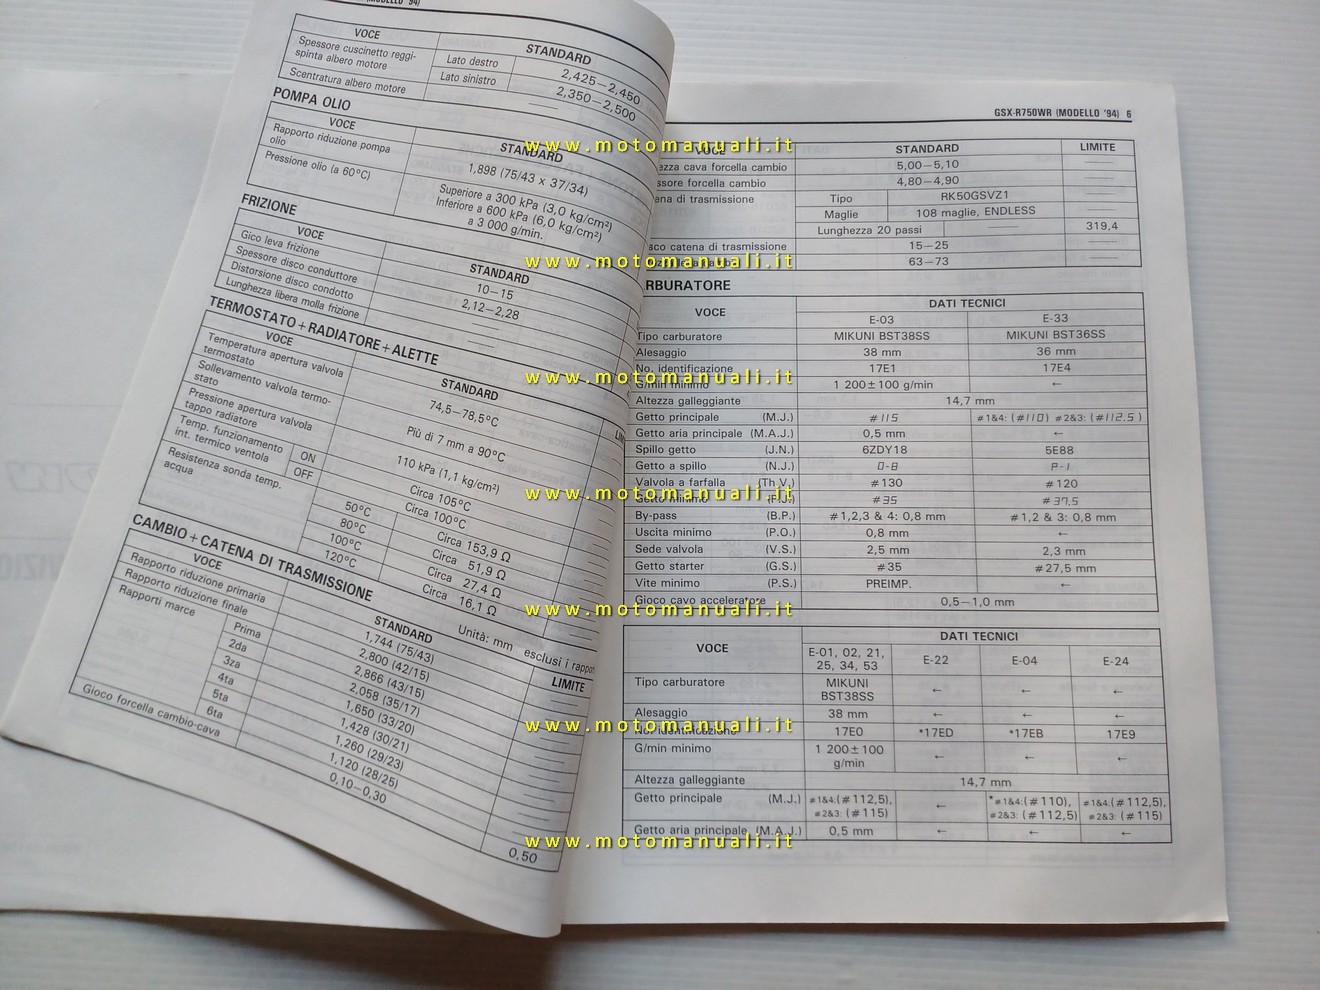 (MODELLO '94)
VOCE STANDARD
Spessore cuscinetto reggi-
spinta albero motore
Lato destro 2,425—2,450
Lato sinistro 2,350—2,500
Scentratura albero motore
POMPA OLIO
VOCE STANDARD
Rapporto riduzione pompa
olio
1,898 (75/43 x 37/34)
Pressione olio (a 60°C)
Superiore a 300 kPa (3,0 kg/cm²)
Inferiore a 600 kPa (6,0 kg/cm²)
a 3 000 g/min.
FRIZIONE
VOCE STANDARD
Gico leva frizione 10—15
Spessore disco conduttore 2,12—2,28
Distorsione disco condotto
Lunghezza libera molla frizione
TERMOSTATO + RADIATORE + ALETTE
VOCE STANDARD
Temperatura apertura valvola
termostato
74,5—78,5°C
Sollevamento valvola termo-
stato
Più di 7 mm a 90°C
Pressione apertura valvola
tappo radiatore
110 kPa (1,1 kg/cm²)
Temp. funzionamento
int. termico ventola
ON Circa 105°C
OFF Circa 100°C
Resistenza sonda temp.
acqua
50°C Circa 153,9 Ω
80°C Circa 51,9 Ω
100°C Circa 27,4 Ω
120°C Circa 16,1 Ω
CAMBIO + CATENA DI TRASMISSIONE
Unità: mm esclusi i rapporti
VOCE STANDARD LIMITE
Rapporto riduzione primaria 1,744 (75/43)
Rapporto riduzione finale 2,800 (42/15)
Rapporti marce
Prima 2,866 (43/15)
2da 2,058 (35/17)
3za 1,650 (33/20)
4ta 1,428 (30/21)
5ta 1,260 (29/23)
6ta 1,120 (28/25)
Gioco forcella cambio-cava 0,10—0,30 0,50
GSX-R750WR (MODELLO '94) 6
VOCE STANDARD LIMITE
cava forcella cambio 5,00—5,10
forcella cambio 4,80—4,90
di trasmissione
Tipo RK50GSVZ1
Maglie 108 maglie, ENDLESS
Lunghezza 20 passi 319,4
catena di trasmissione 15—25
63—73
RBURATORE
VOCE DATI TECNICI
E-03 E-33
Tipo carburatore MIKUNI BST38SS MIKUNI BST36SS
Alesaggio 38 mm 36 mm
No. identificazione 17E1 17E4
G/min minimo 1 200±100 g/min ←
Altezza galleggiante 14,7 mm
Getto principale (M.J.) #115 #1&4: (#110) #2&3: (#112.5)
Getto aria principale (M.A.J.) 0,5 mm ←
Spillo getto (J.N.) 6ZDY18 5E88
Getto a spillo (N.J.) O-8 P-1
Valvola a farfalla (Th.V.) #130 #120
Getto minimo (P.J.) #35 #37,5
By-pass (B.P.) #1,2,3 & 4: 0,8 mm #1,2 & 3: 0,8 mm
Uscita minimo (P.O.) 0,8 mm ←
Sede valvola (V.S.) 2,5 mm 2,3 mm
Getto starter (G.S.) #35 #27,5 mm
Vite minimo (P.S.) PREIMP. ←
Gioco cavo acceleratore 0,5—1,0 mm
VOCE DATI TECNICI
E-01, 02, 21,
25, 34, 53
E-22 E-04 E-24
Tipo carburatore MIKUNI
BST38SS
← ← ←
Alesaggio 38 mm ← ← ←
No. identificazione 17E0 *17ED *17EB 17E9
G/min minimo 1 200±100
g/min
← ← ←
Altezza galleggiante 14,7 mm
Getto principale (M.J.) #1&4:(#112,5), ← *#1&4:(#110), #1&4:(#112,5),
#2&3: (#115) #2&3: (#112,5) #2&3: (#115)
Getto aria principale (M.A.J.) 0,5 mm ← ← ←
www.motomanuali.it
www.motomanuali.it
www.motomanuali.it
www.motomanuali.it
www.motomanuali.it
www.motomanuali.it
www.motomanuali.it